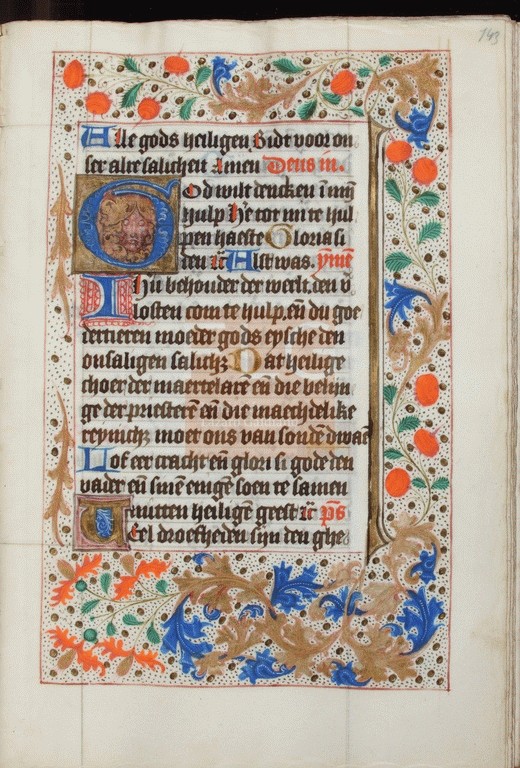 143
Alle gods heiligen Bidt voor on
ser alre salicheit Amen Deus in.
God wilt dencken ī mij
hulp He tot mi te hul
pen haeste Gloria si
den
Als twas. ymē
Ihū behouder der werlt, den v
losten com te hulp, eñ du goe
dertieren moeder gods eysche den
onsaligen salich; Dat heilige
choer der maertelarē eñ die belijn
ge der priesterē eñ die maechdelike
reynich; moet ons van sondē dwaē
Lof eer cracht eñ glori si gode den
vader eñ sinē enigē soen te samen
mitten heiligē geest ps
Veel droefheden sijn den ghe